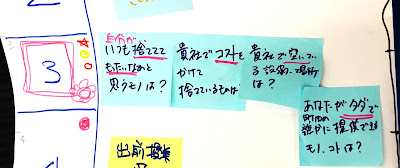 3
自分が
いつも捨ててて
もったいないなと
思うモノは?
貴社でコストを
かけて
捨ているものは?
貴社で空いてい
る設備・場所
は?
あなたがタダで
誰かに提供できる
モノ、コトは?
出前授業